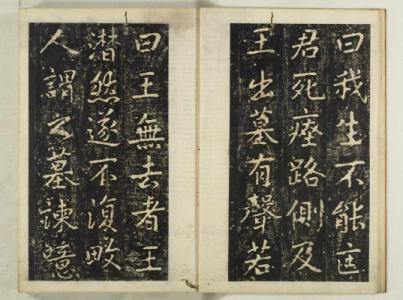 曰我生不能匡
君死瘞路側及
王出墓有聲若
曰王無去者王
潸然遂不復畋
人謂之墓諫噫